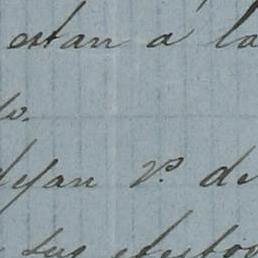 estan a la
dejan V.º de
sus efectos